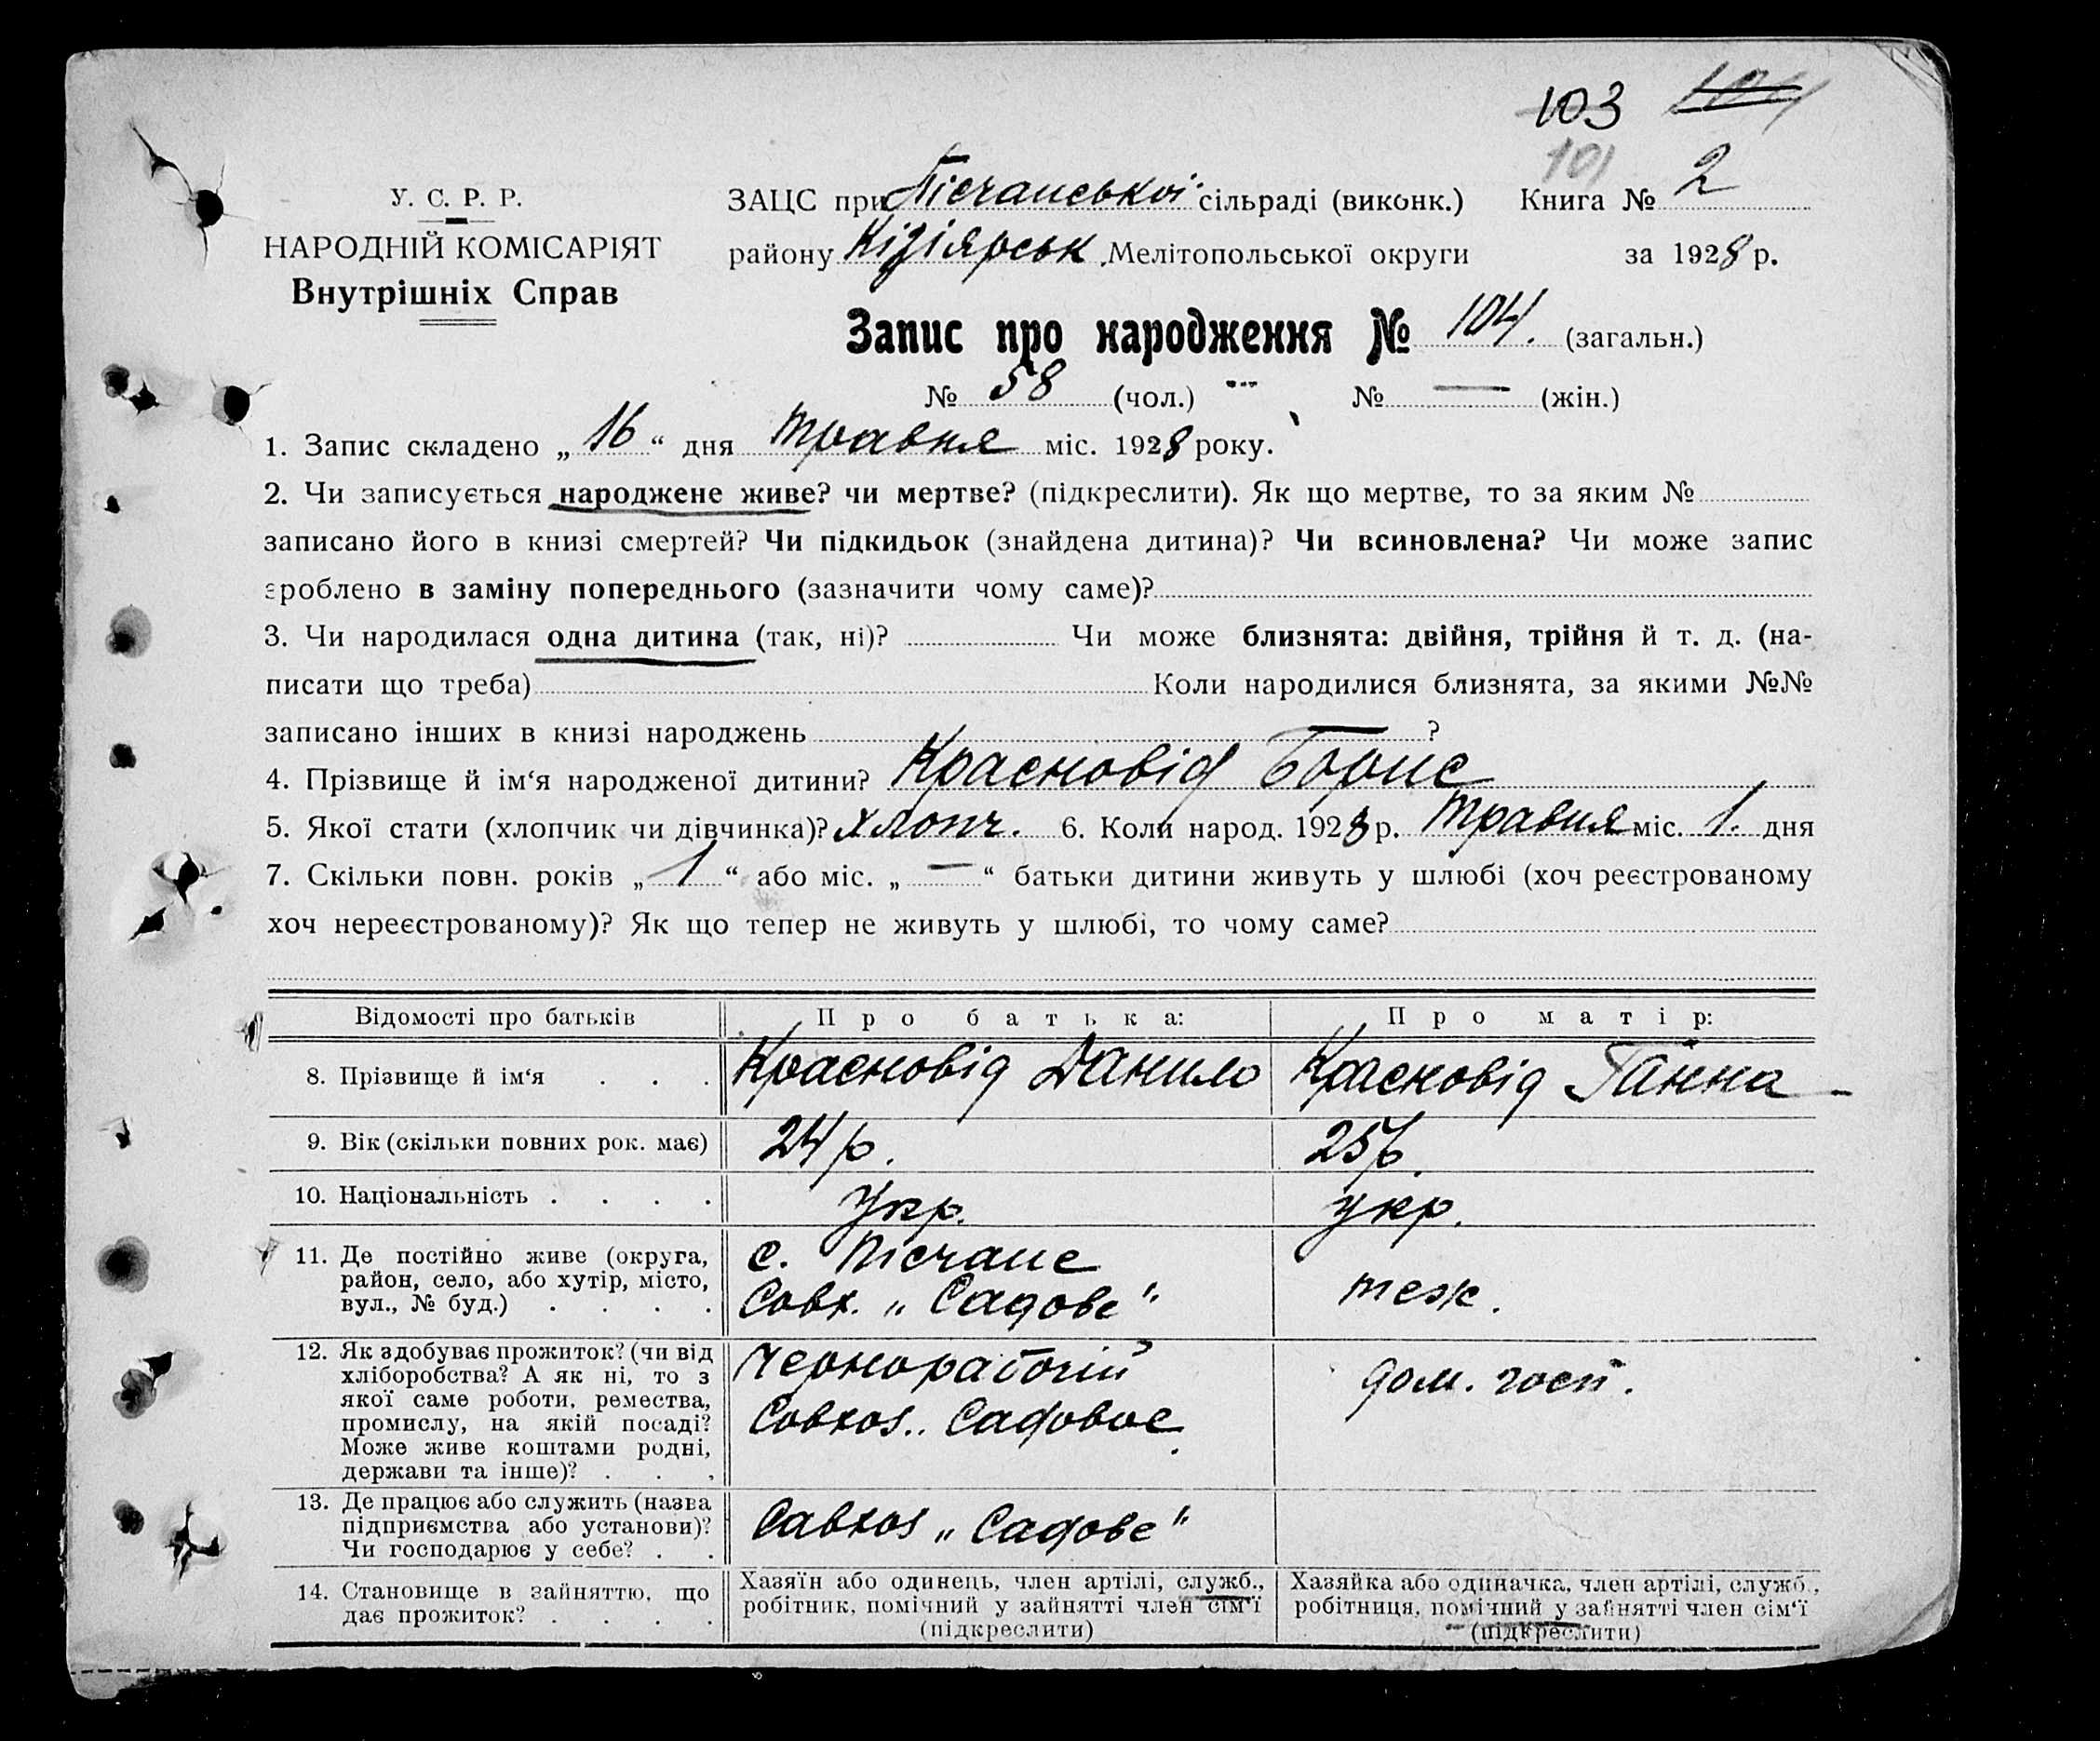 103 104
101
У. С. Р. Р.
НАРОДНІЙ КОМІСАРІЯТ
Внутрішніх Справ
ЗАЦС при Пісчанської сільраді (виконк.) Книга № 2
району Кізіярськ Мелітопольської округи за 1928 р.
Запис про народження № 104. (загальн.)
№ 58 (чол.) № — (жін.)
1. Запис складено „ 16 “ дня травня міс. 1928 року.
2. Чи записується народжене живе? чи мертве? (підкреслити). Як що мертве, то за яким №
записано його в книзі смертей? Чи підкидьок (знайдена дитина)? Чи всиновлена? Чи може запис
зроблено в заміну попереднього (зазначити чому саме)?
3. Чи народилася одна дитина (так, ні)? Чи може близнята: двійня, трійня й т. д. (на-
писати що треба) Коли народилися близнята, за якими №№
записано інших в книзі народжень ?
4. Прізвище й ім‘я народженої дитини? Красновід Борис
5. Якої стати (хлопчик чи дівчинка)? хлопч. 6. Коли народ. 1928 р. травня міс. 1. дня
7. Скільки повн. років „ 1 “ або міс. „ — “ батьки дитини живуть у шлюбі (хоч реєстрованому
хоч нереєстрованому)? Як що тепер не живуть у шлюбі, то чому саме?
Відомості про батьків Про батька: Про матір:
8. Прізвище й ім‘я . . . Красновід Данило Красновід Ганна
9. Вік (скільки повних рок. має) 24 р. 25 р.
10. Національність . . . . Укр. укр.
11. Де постійно живе (округа,
район, село, або хутір, місто,
вул., № буд.) . . . .
с. Пісчане
Совх. „Садове“
теж.
12. Як здобуває прожиток? (чи від
хліборобства? А як ні, то з
якої саме роботи, ремества,
промислу, на якій посаді?
Може живе коштами родні,
держави та інше)? . . .
Чернорабочій
Совхоз.. Садовое
дом. госп.
13. Де працює або служить (назва
підприємства або установи)?
Чи господарює у себе? . .
Савхоз „Садове“
14. Становище в зайняттю, що
дає прожиток? . . . .
Хазяїн або одинець, член артілі, служб.,
робітник, помічний у зайнятті член сім‘ї
(підкреслити)
Хазяйка або одиначка, член артілі, служб.,
робітниця, помічний у зайнятті член сім‘ї
(підкреслити)